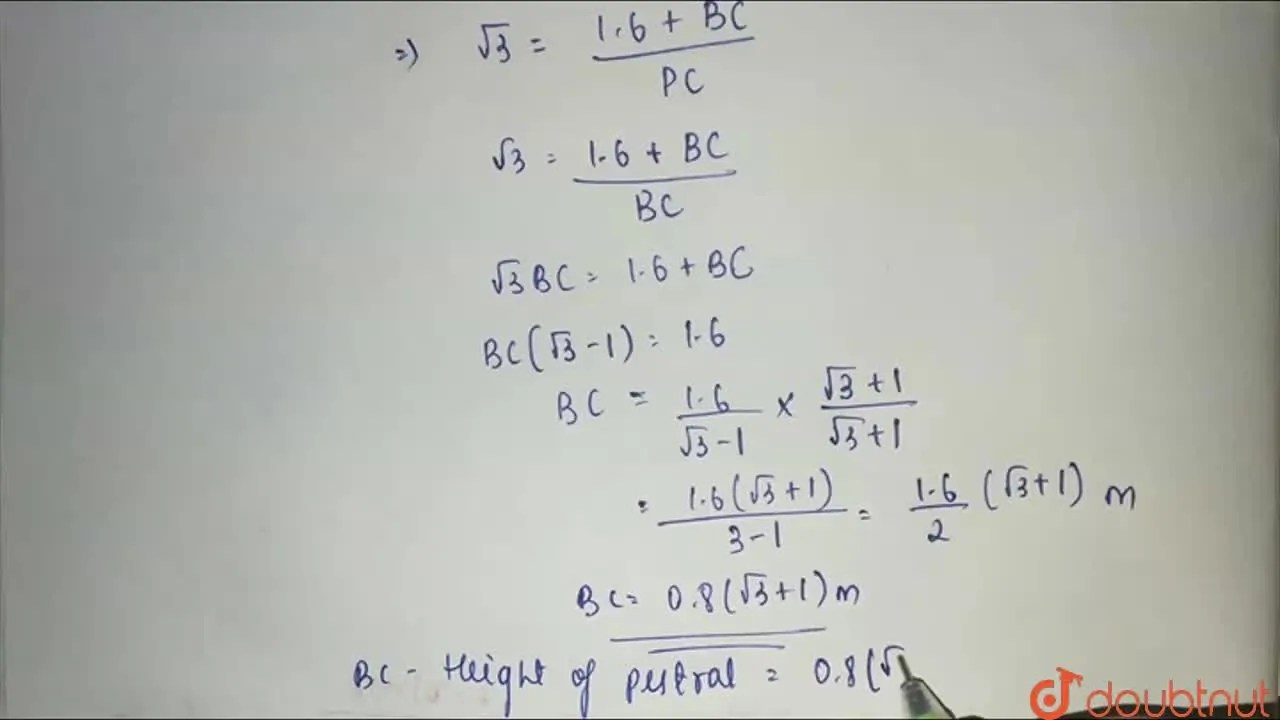 =) √3 = (1.6 + BC)/PC
√3 = (1.6 + BC)/BC
√3 BC = 1.6 + BC
BC(√3 - 1) = 1.6
BC = 1.6/(√3 - 1) × (√3 + 1)/(√3 + 1)
= 1.6(√3 + 1)/(3 - 1) = 1.6/2 (√3 + 1) m
BC = 0.8(√3 + 1) m
BC - Height of pestral = 0.8(√
doubtnut